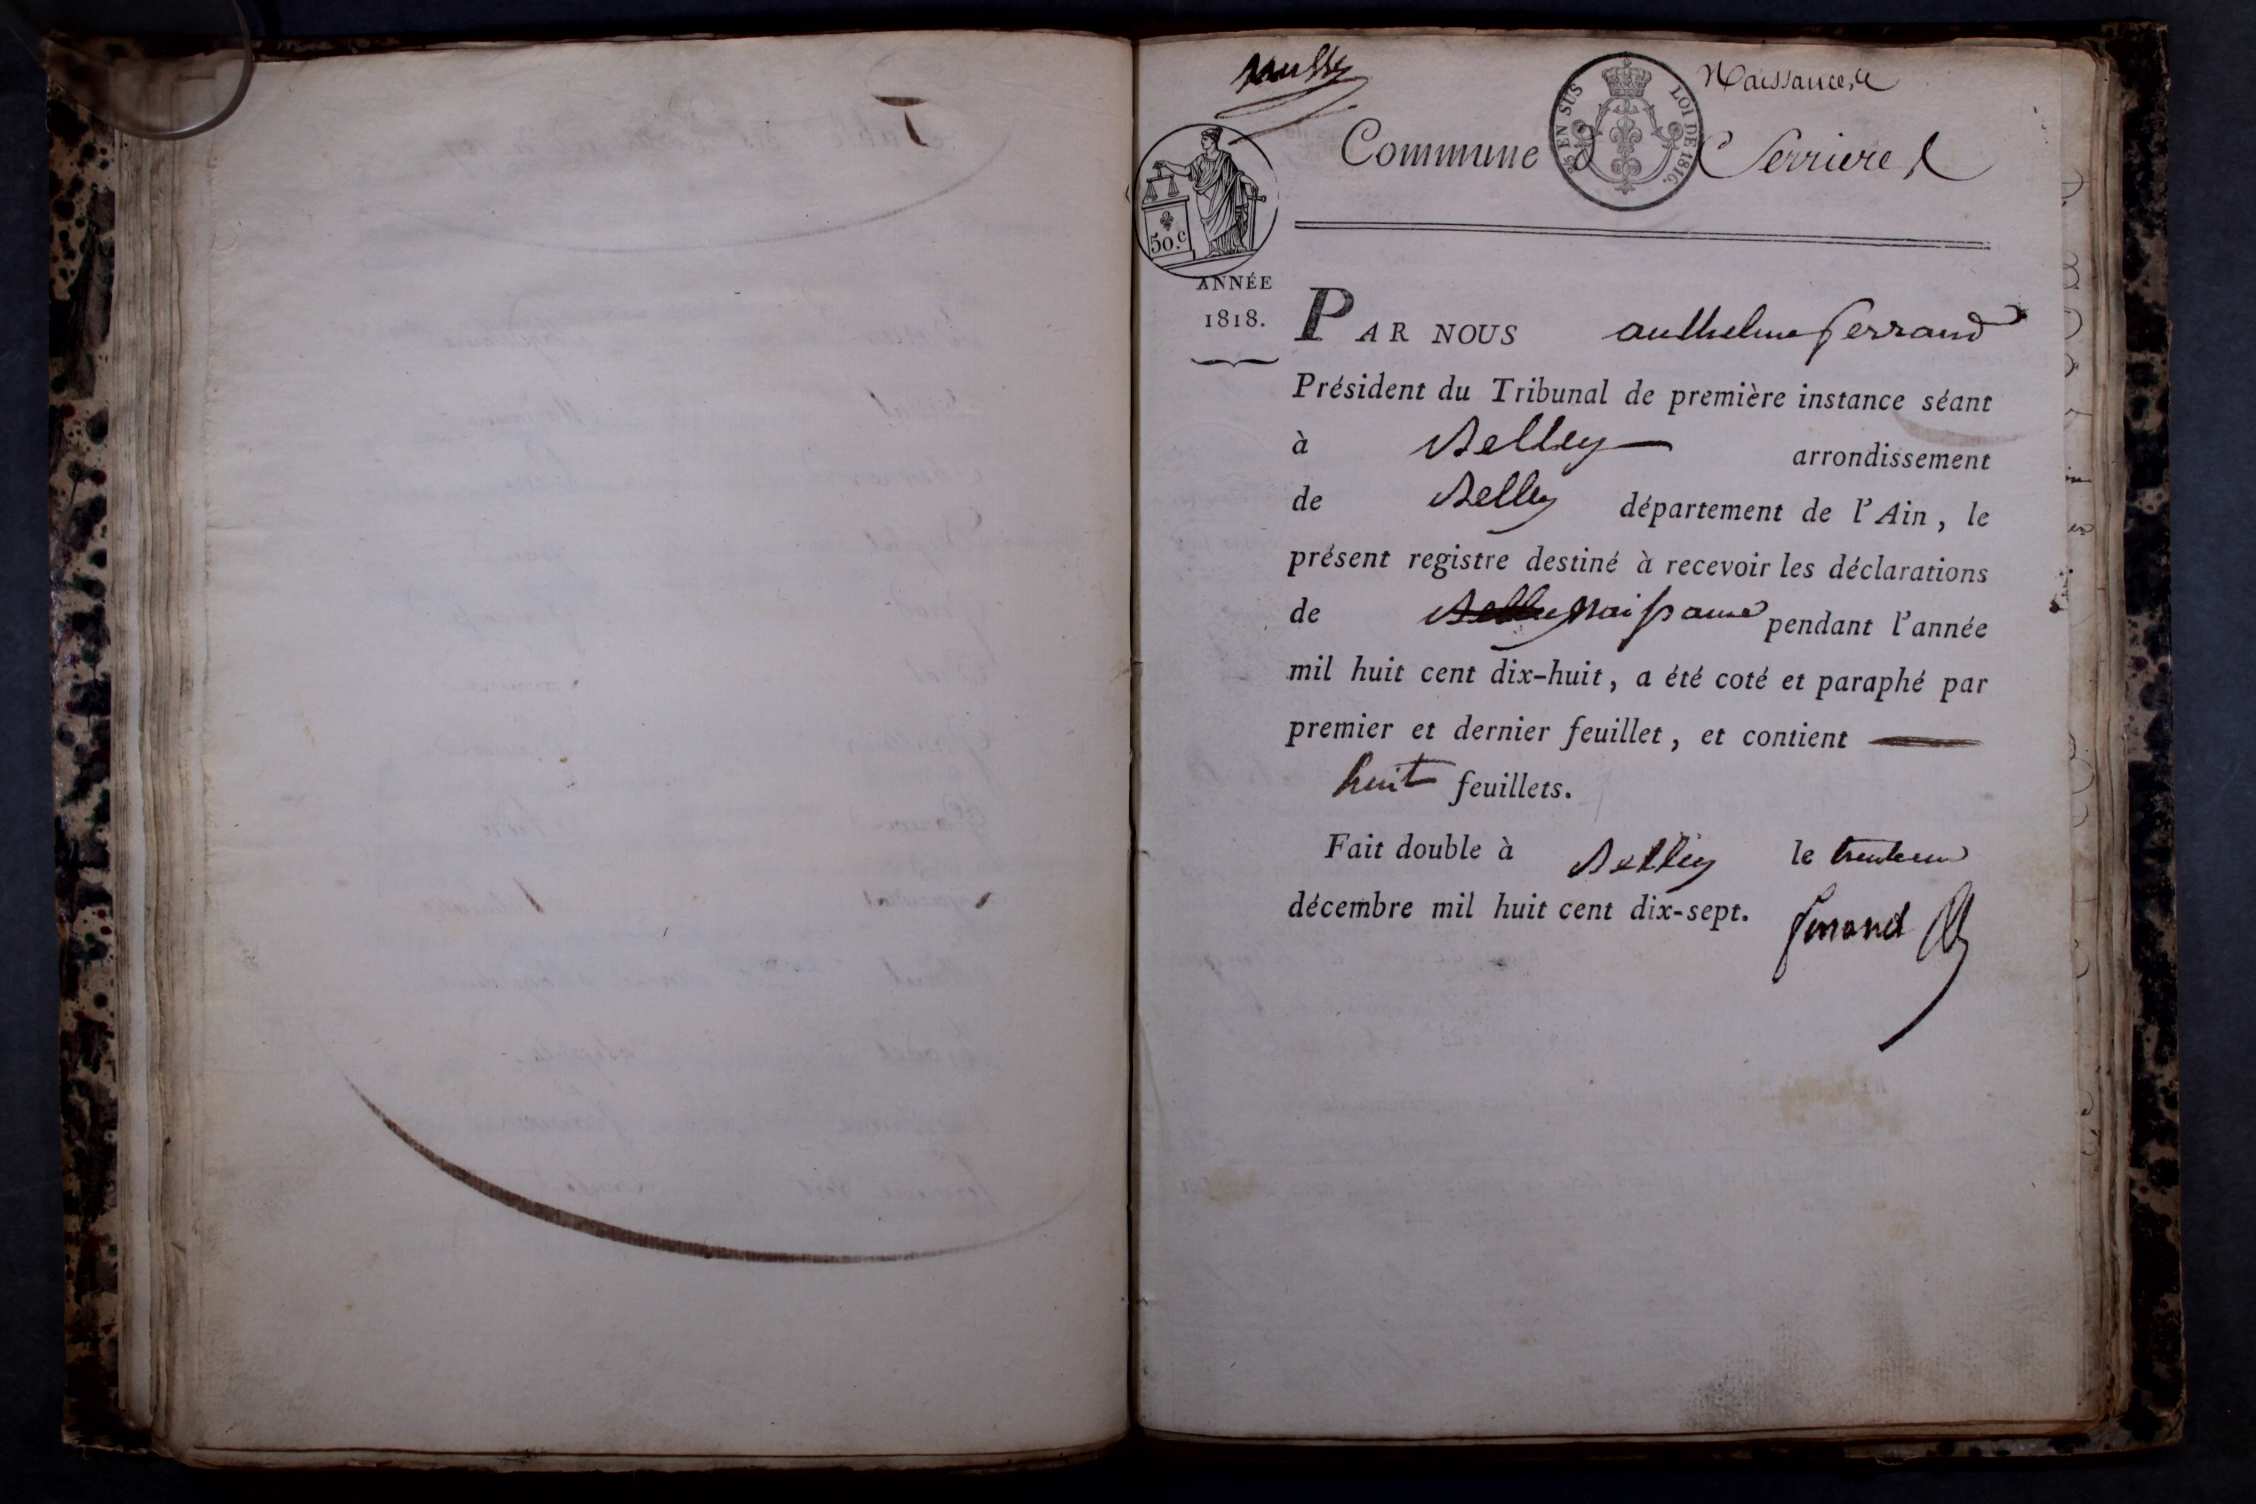 Naissances
25 EN SUS LOI DE 1816.
Commune de Serrieres
50.c
ANNÉE
1818.
PAR NOUS anthelme ferrand
Président du Tribunal de première instance séant
à Belley arrondissement
de Belley département de l'Ain, le
présent registre destiné à recevoir les déclarations
de Belley Naissance pendant l'année
mil huit cent dix-huit, a été coté et paraphé par
premier et dernier feuillet, et contient
huit feuillets.
Fait double à Belley le trente un
décembre mil huit cent dix-sept.
ferrand